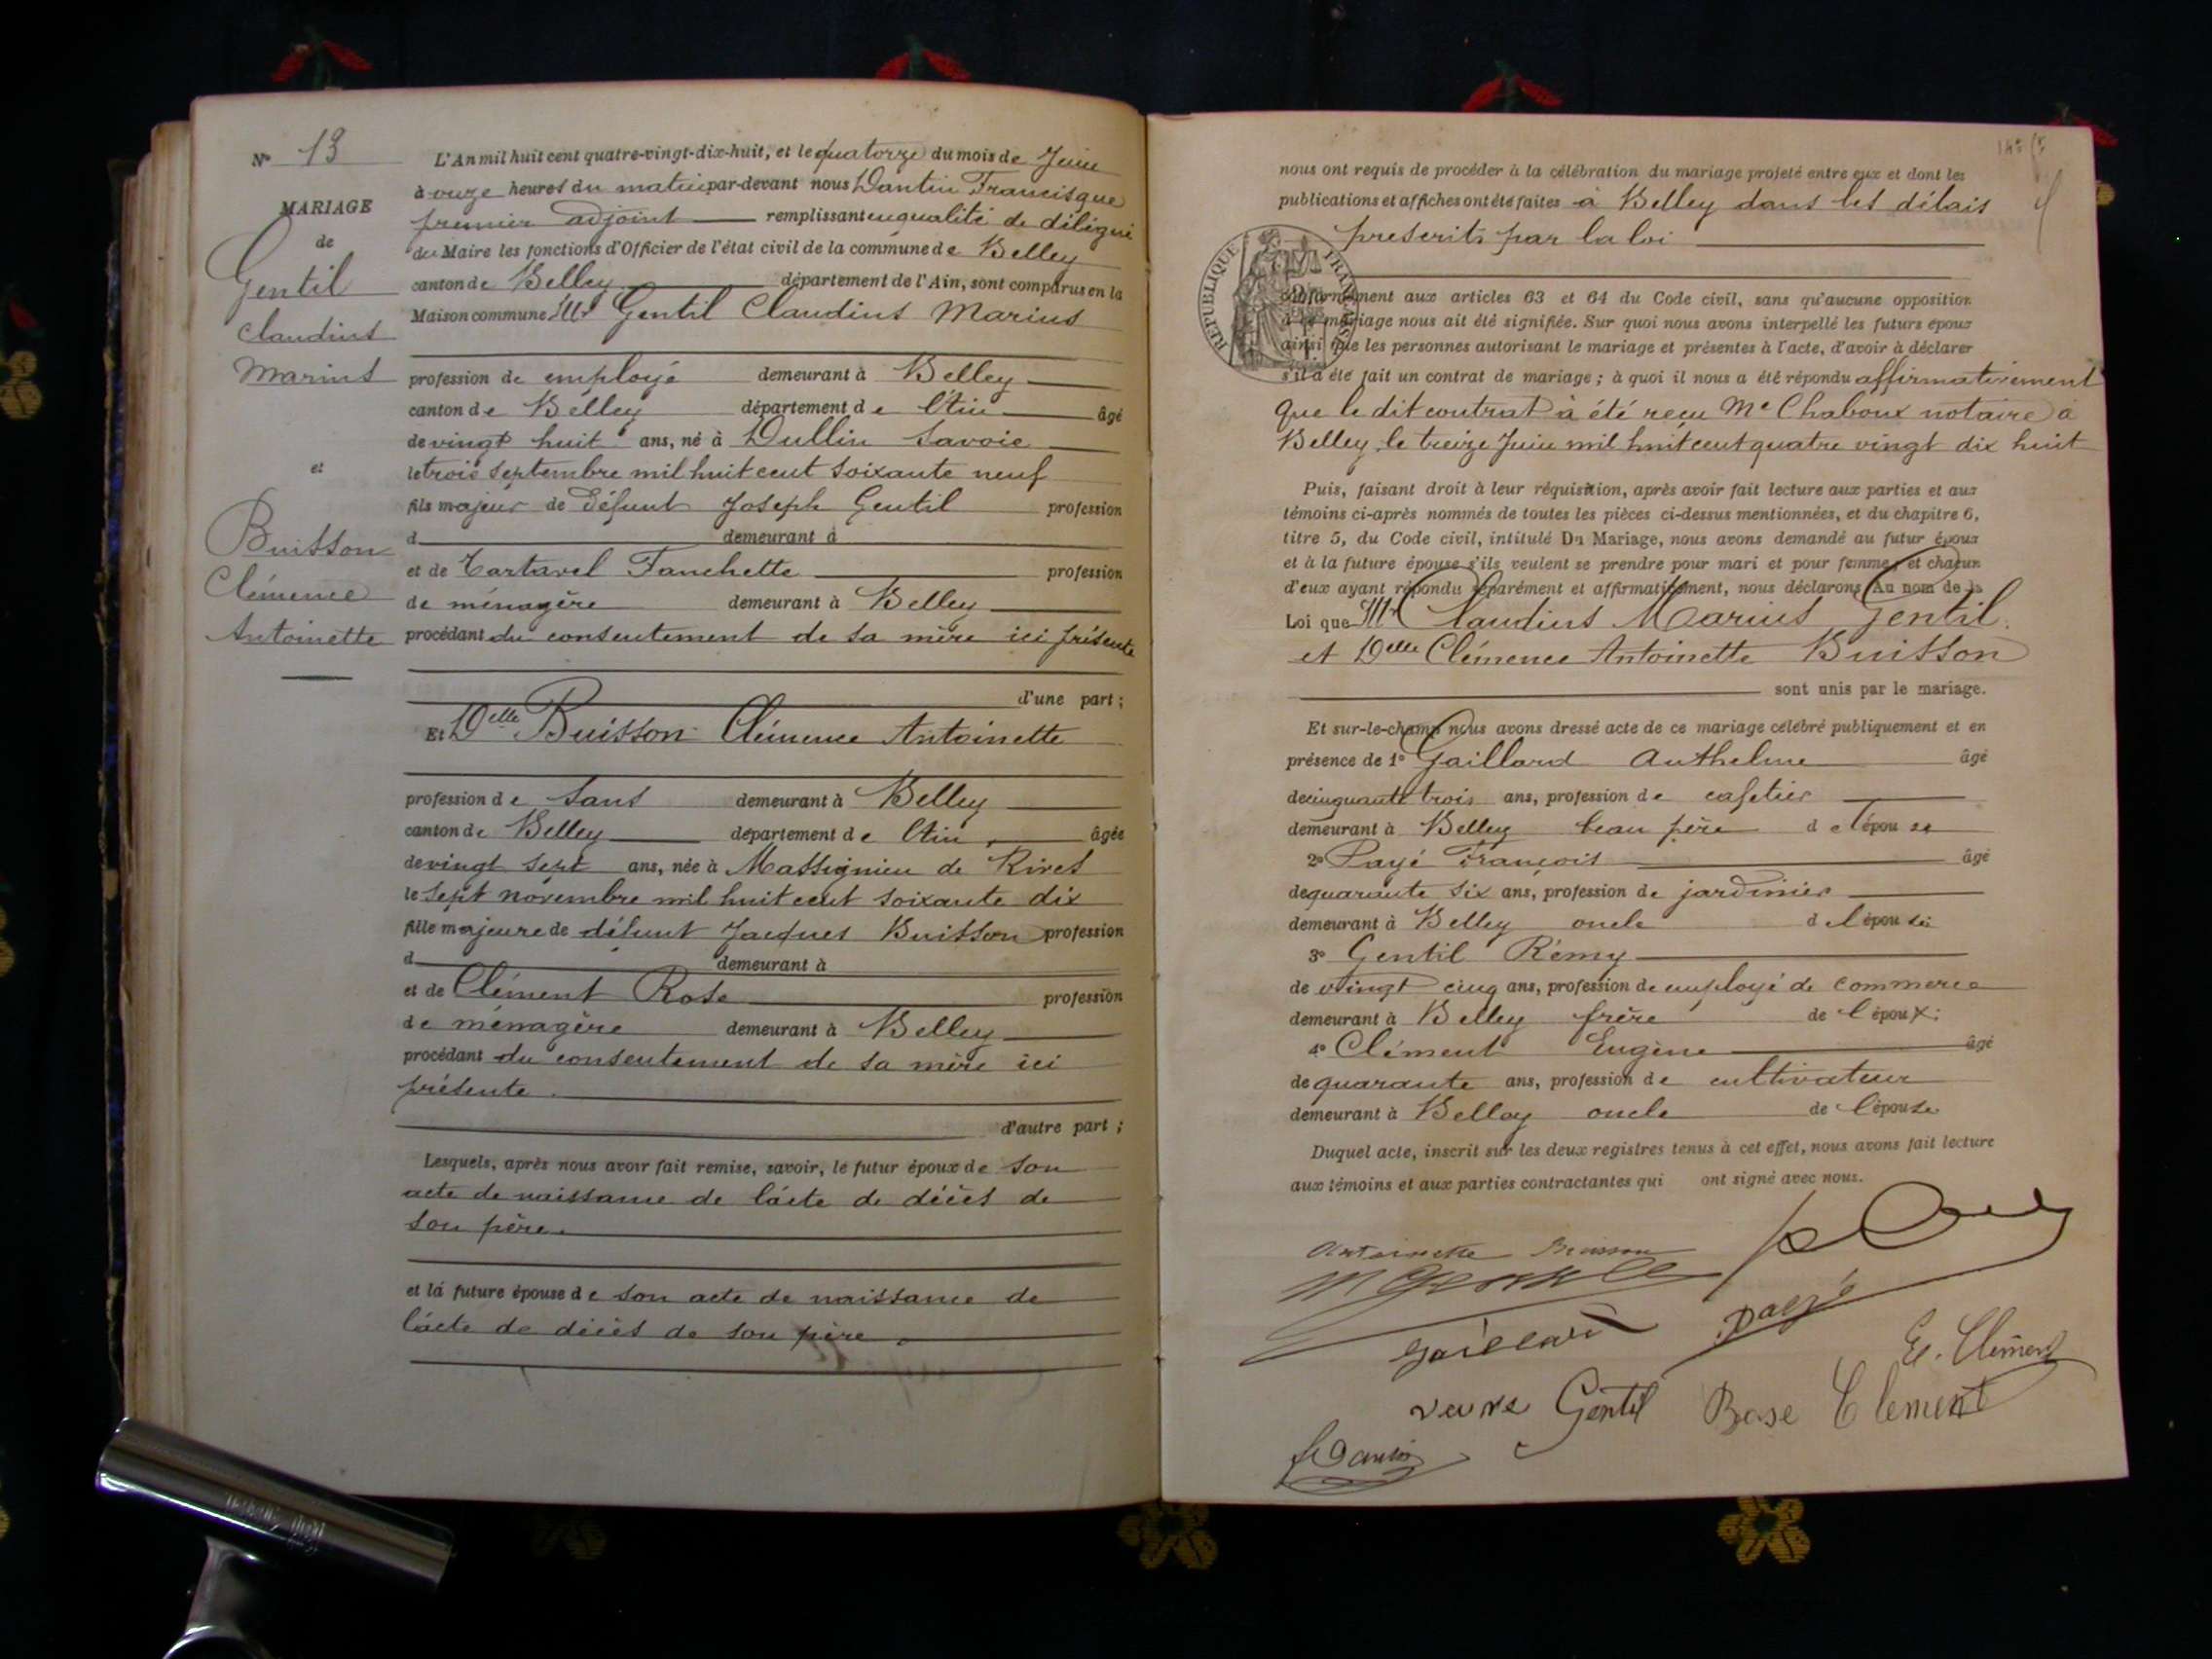 Nº 13
MARIAGE
de
Gentil
Claudius
Marius
et
Buisson
Clémence
Antoinette
L'An mil huit cent quatre-vingt-dix-huit, et le quatorze du mois de Juin
à onze heures du matin par-devant nous Dantin Francisque
premier adjoint remplissant en qualité de délégué
du Maire les fonctions d'Officier de l'état civil de la commune de Belley
canton de Belley département de l'Ain, sont comparus en la
Maison commune Mr Gentil Claudius Marius
profession de employé demeurant à Belley
canton de Belley département de l'Ain âgé
de vingt huit ans, né à Dullin Savoie
le trois septembre mil huit cent soixante neuf
fils majeur de défunt Joseph Gentil profession
d demeurant à
et de Tartavel Fanchette profession
de ménagère demeurant à Belley
procédant du consentement de sa mère ici présente
d'une part ;
Et Delle Buisson Clémence Antoinette
profession de sans demeurant à Belley
canton de Belley département de l'Ain, âgée
de vingt sept ans, née à Massignieu de Rives
le sept novembre mil huit cent soixante dix
fille majeure de défunt Jacques Buisson profession
d demeurant à
et de Clément Rose profession
de ménagère demeurant à Belley
procédant du consentement de sa mère ici
présente.
d'autre part ;
Lesquels, après nous avoir fait remise, savoir, le futur époux de son
acte de naissance de l'acte de décès de
son père.
et la future épouse de son acte de naissance de
l'acte de décès de son père.
nous ont requis de procéder à la célébration du mariage projeté entre eux et dont les
publications et affiches ont été faites à Belley dans les délais
prescrits par la loi
REPUBLIQUE FRANÇAISE
conformément aux articles 63 et 64 du Code civil, sans qu'aucune opposition
à ce mariage nous ait été signifiée. Sur quoi nous avons interpellé les futurs époux
ainsi que les personnes autorisant le mariage et présentes à l'acte, d'avoir à déclarer
s'il a été fait un contrat de mariage ; à quoi il nous a été répondu affirmativement
que le dit contrat à été reçu Me Chaboux notaire à
Belley, le treize Juin mil huit cent quatre vingt dix huit
Puis, faisant droit à leur réquisition, après avoir fait lecture aux parties et aux
témoins ci-après nommés de toutes les pièces ci-dessus mentionnées, et du chapitre 6,
titre 5, du Code civil, intitulé Du Mariage, nous avons demandé au futur époux
et à la future épouse s'ils veulent se prendre pour mari et pour femme, et chacun
d'eux ayant répondu séparément et affirmativement, nous déclarons Au nom de la
Loi que Mr Claudius Marius Gentil.
et Delle Clémence Antoinette Buisson
sont unis par le mariage.
Et sur-le-champ nous avons dressé acte de ce mariage célébré publiquement et en
présence de 1º Gaillard Anthelme âgé
de cinquante trois ans, profession de cafetier
demeurant à Belley beau père de l'épouse
2º Payé François âgé
de quarante six ans, profession de jardinier
demeurant à Belley oncle d el épouse
3º Gentil Rémy
de vingt cinq ans, profession de employé de commerce
demeurant à Belley frère de l'époux;
4º Clément Eugène âgé
de quarante ans, profession de cultivateur
demeurant à Belley oncle de l'épouse
Duquel acte, inscrit sur les deux registres tenus à cet effet, nous avons fait lecture
aux témoins et aux parties contractantes qui ont signé avec nous.
Antoinette Buisson
M Gentil
Gaillard Payé
E. Clément
veuve Gentil Rose Clement
F Dantin